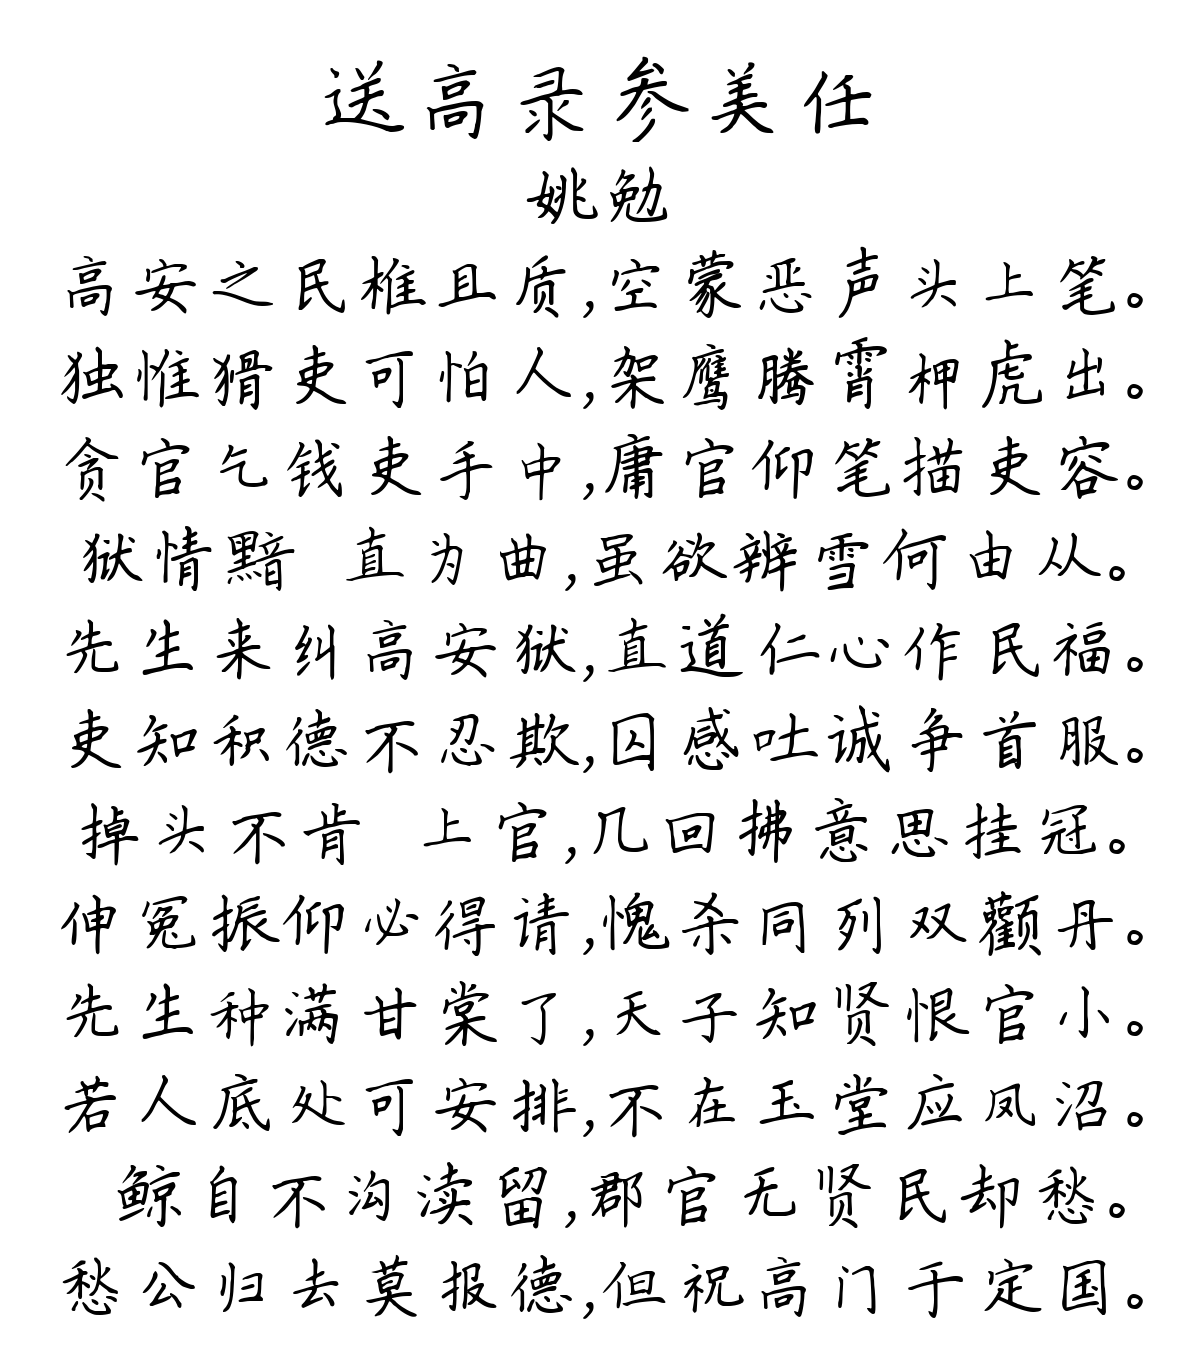 送高录参美任
姚勉
高安之民椎且质,空蒙恶声头上笔。
独惟猾吏可怕人,架鹰腾霄柙虎出。
贪官乞钱吏手中,庸官仰笔描吏容。
狱情黯 直为曲,虽欲辨雪何由从。
先生来纠高安狱,直道仁心作民福。
吏知积德不忍欺,囚感吐诚争首服。
掉头不肯 上官,几回拂意思挂冠。
伸冤振仰必得请,愧杀同列双颧丹。
先生种满甘棠了,天子知贤恨官小。
若人底处可安排,不在玉堂应凤沼。
鲸自不沟渎留,郡官无贤民却愁。
愁公归去莫报德,但祝高门于定国。